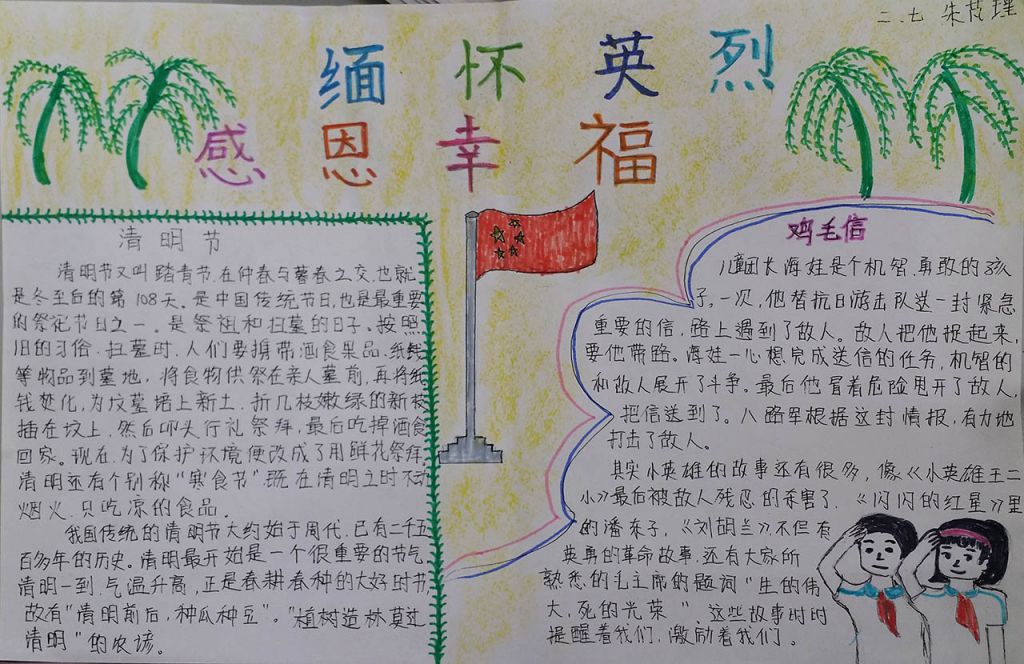 二.七 朱
缅怀英烈
感恩幸福
清明节
清明节又叫踏青节,在仲春与暮春之交,也就
是冬至后的第108天。是中国传统节日,也是最重要
的祭祀节日之一。是祭祖和扫墓的日子。按照
旧的习俗,扫墓时,人们要携带酒食果品、纸钱
等物品到墓地,将食物供祭在亲人墓前,再将纸
钱焚化,为坟墓培上新土,折几枝嫩绿的新枝
插在坟上,然后叩头行礼祭拜,最后吃掉酒食
回家。现在,为了保护环境便改成了用鲜花祭拜
清明还有个别称“寒食节”,既在清明立时不动
烟火,只吃凉的食品。
我国传统的清明节大约始于周代,已有二千五
百多年的历史。清明最开始是一个很重要的节气,
清明一到,气温升高,正是春耕春种的大好时节,
故有“清明前后,种瓜种豆”。“植树造林莫过
清明”的农谚。
鸡毛信
儿童团长海娃是个机智、勇敢的孩
子,一次,他替抗日游击队送一封紧急
重要的信,路上遇到了敌人。敌人把他捉起来,
要他带路。海娃一心想完成送信的任务,机智的
和敌人展开了斗争。最后他冒着危险甩开了敌人,
把信送到了。八路军根据这封情报,有力地
打击了敌人。
其实小英雄的故事还有很多,像《小英雄王二
小》最后被敌人残忍的杀害了,《闪闪的红星》里
的潘东子,《刘胡兰》不但有
英勇的革命故事,还有大家所
熟悉的毛主席的题词“生的伟
大,死的光荣”,这些故事时时
提醒着我们,激励着我们。